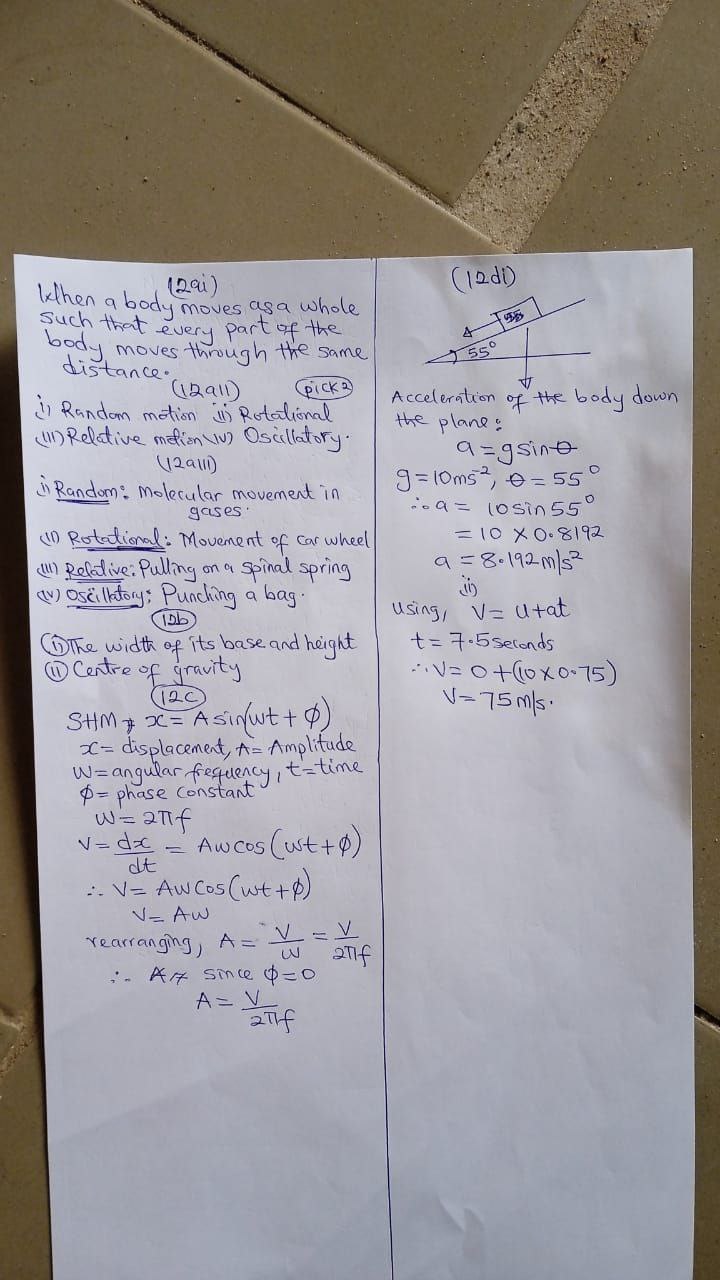 (12ai)
When a body moves as a whole
such that every part of the
body moves through the same
distance.
(12aii) (pick 2)
i) Random motion ii) Rotational
(iii) Relative motion (iv) Oscillatory.
(12aiii)
i) Random: Molecular movement in
gases.
(ii) Rotational: Movement of car wheel
(iii) Relative: Pulling on a spinal spring
(iv) Oscillatory: Punching a bag.
12b
(i) The width of its base and height
(ii) Centre of gravity
12c
SHM x = A sin(wt + φ)
x = displacement, A = Amplitude
W = angular frequency, t = time
φ = phase constant
W = 2πf
V = dx/dt = Aw cos (wt + φ)
∴ V = Aw Cos (wt + φ)
V = Aw
rearranging, A = V/w = V/2πf
∴ since φ = 0
A = V/2πf
(12di)
55°
Acceleration of the body down
the plane:
a = g sin θ
g = 10ms⁻², θ = 55°
∴ a = 10 sin 55°
= 10 X 0.8192
a = 8.192 m/s²
ii)
using, V = u + at
t = 7.5 seconds
∴ V = 0 + (10 x 0.75)
V = 75 m/s.